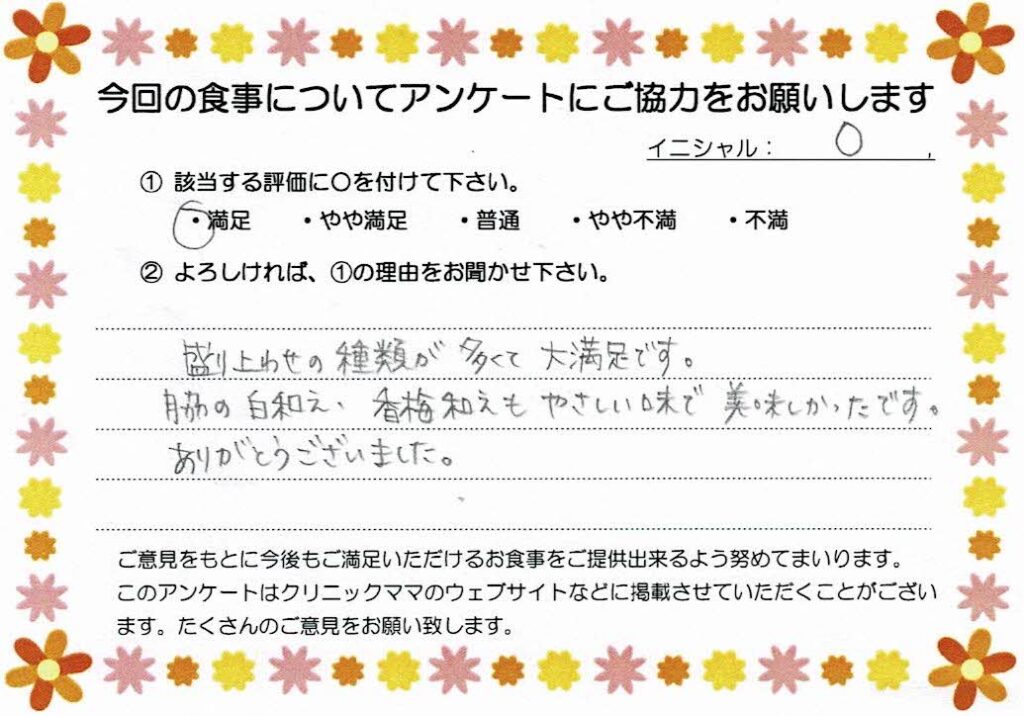 今回の食事についてアンケートにご協力をお願いします
イニシャル： O
① 該当する評価に○を付けて下さい。
・満足 ・やや満足 ・普通 ・やや不満 ・不満
② よろしければ、①の理由をお聞かせ下さい。
盛り上わせの種類が多くて大満足です。
の白和え、香梅和えもやさしい味で美味しかったです。
ありがとうございました。
ご意見をもとに今後もご満足いただけるお食事をご提供出来るよう努めてまいります。
このアンケートはクリニックママのウェブサイトなどに掲載させていただくことがござい
ます。たくさんのご意見をお願い致します。